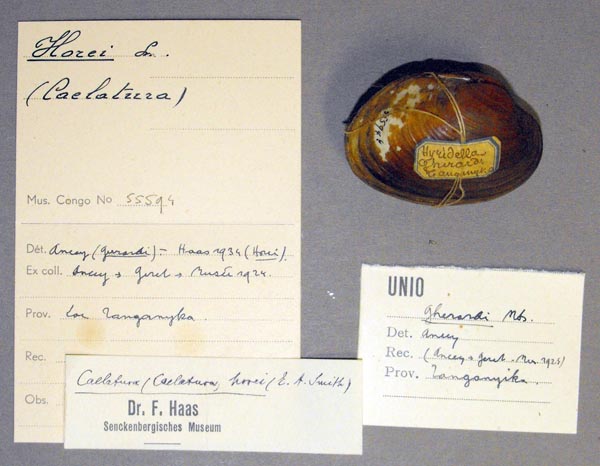 Horei Sm.
(Caelatura)
Mus. Congo No 55594
Dét. Ancey (gerardi) - Haas 1934 (Horei)
Ex coll. Ancey > Geret > Musée 1924.
Prov. Lac Tanganyka.
Rec.
Obs.
Hyridella
Gherardi
Tanganyka
UNIO
Gherardi Mts.
Det. Ancey
Rec. (Ancey > Geret - Mus. 1925)
Prov. Tanganyika.
Caelatura (Caelatura) horei (E. A. Smith)
Dr. F. Haas
Senckenbergisches Museum